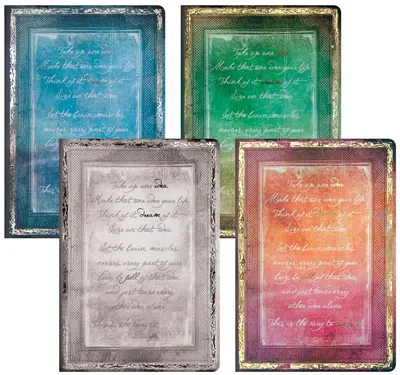 Take up one idea.
Make that one idea your life.
Think of it, dream of it
Live on that idea.
Let the brain, muscles,
nerves, every part of your
This is
Take up one idea.
Make that one idea your life.
Think of it, dream of it
Live on that idea.
Let the brain, muscles,
nerves, every part of your
Take up one idea.
Make that one idea your life.
Think of it, dream of it
Live on that idea.
Let the brain, muscles,
nerves, every part of your
body, be full of that idea
and just leave every
other idea alone.
This is the way to
Take up one idea.
Make that one idea your life.
Think of it, dream of it
Live on that idea.
Let the brain, muscles,
nerves, every part of your
body, be full of that idea
and just leave every
other idea alone.
This is the way to